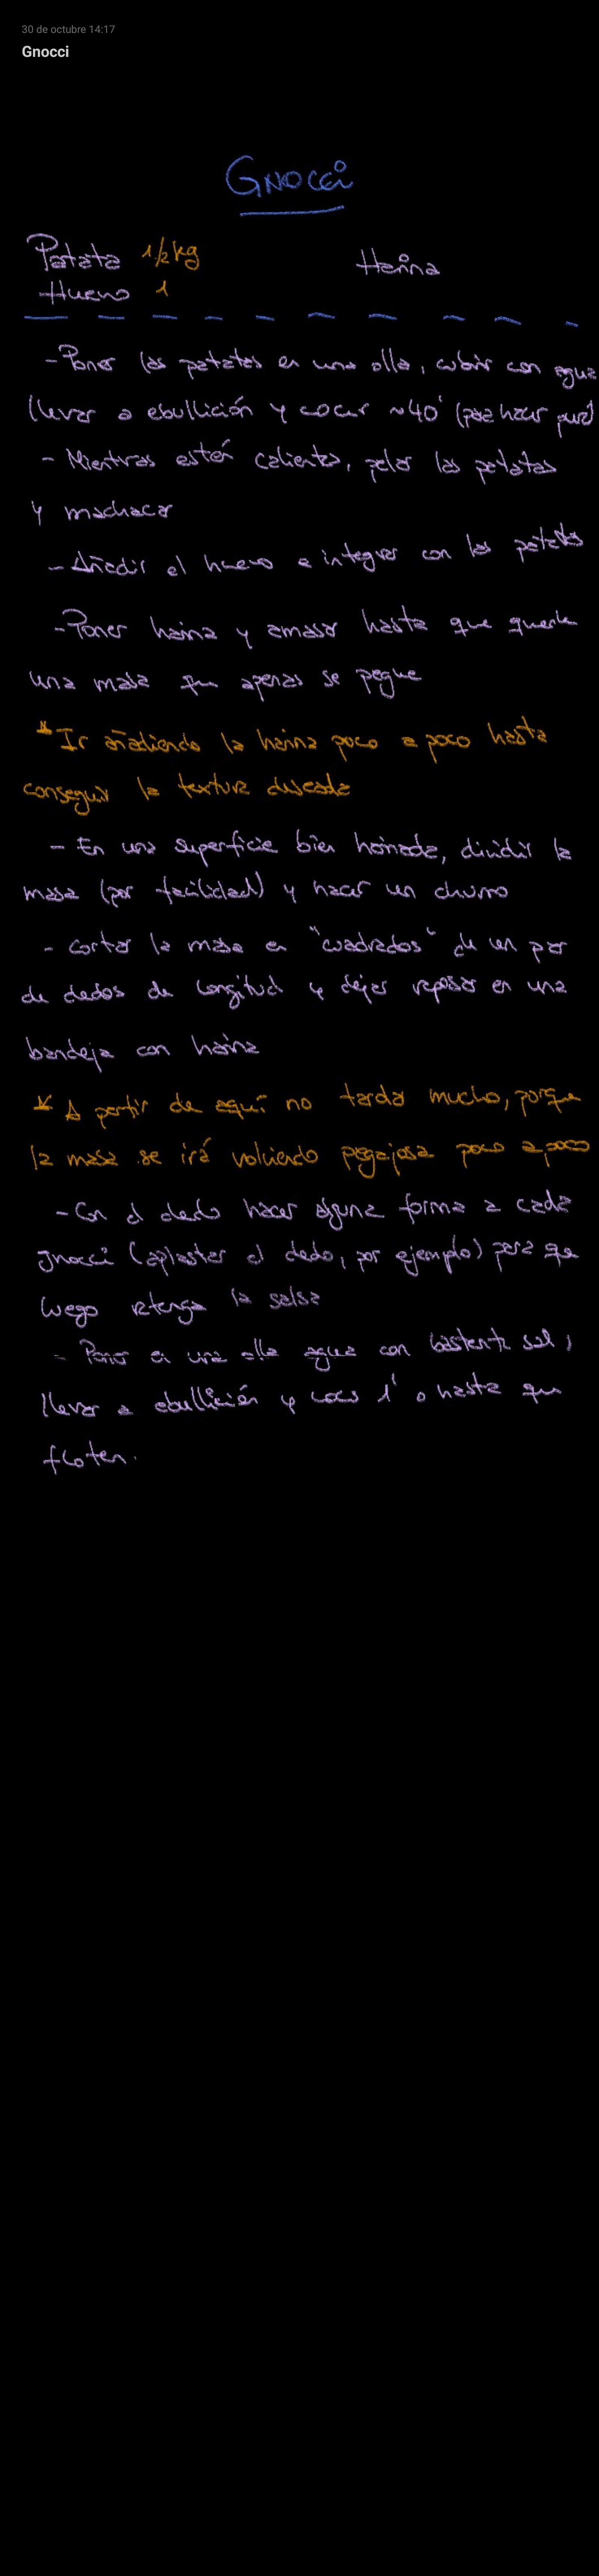 30 de octubre 14:17
Gnocci
GNOCCi
Patata 1/2 kg Harina
Huevo 1
- Poner las patatas en una olla, cubrir con agua
llevar a ebullición y cocer ~40' (para hacer puré)
- Mientras estén calientes, pelar las patatas
y machacar
- Añadir el huevo e integrar con las patatas
- Poner harina y amasar hasta que quede
una masa que apenas se pegue
* Ir añadiendo la harina poco a poco hasta
conseguir la textura deseada
- En una superficie bien harinada, dividir la
masa (por facilidad) y hacer un churro
- Cortar la masa en "cuadrados" de un par
de dedos de longitud y dejar reposar en una
bandeja con harina
* A partir de aquí no tardar mucho, porque
la masa se irá volviendo pegajosa poco a poco
- Con el dedo hacer alguna forma a cada
gnocci (aplastar el dedo, por ejemplo) para que
luego retenga la salsa
- Poner en una olla agua con bastante sal,
llevar a ebullición y cocer 1' o hasta que
floten.